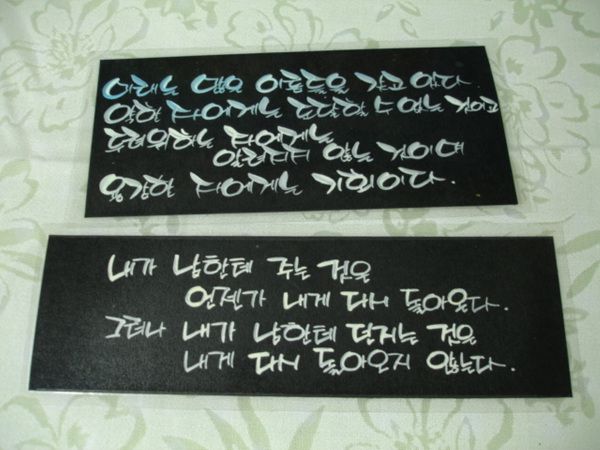 미래는 많은 이름들을 갖고 있다
약한 자에게는 도달할 수 없는 것이고
두려워하는 자에게는
알려지지 않는 것이며
용감한 자에게는 기회이다.
내가 남한테 주는 것은
언젠가 내게 다시 돌아온다.
그러나 내가 남한테 던지는 것은
내게 다시 돌아오지 않는다.